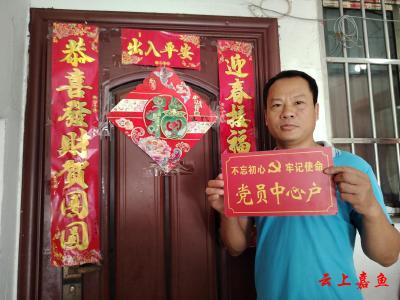 出入平安
恭喜发财贺团圆
迎春接福
福
不忘初心 牢记使命
党员中心户
云上嘉鱼